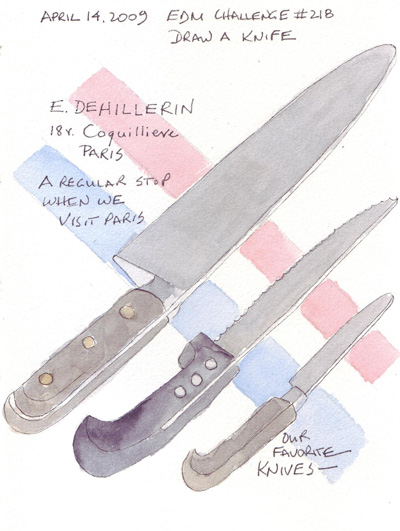 APRIL 14.2009 EDM CHALLENGE #218
DRAW A KNIFE
E. DEHILLERIN
18 r. Coquilliere
PARIS
A REGULAR STOP
WHEN WE
VISIT PARIS
OUR
FAVORITE
KNIVES—